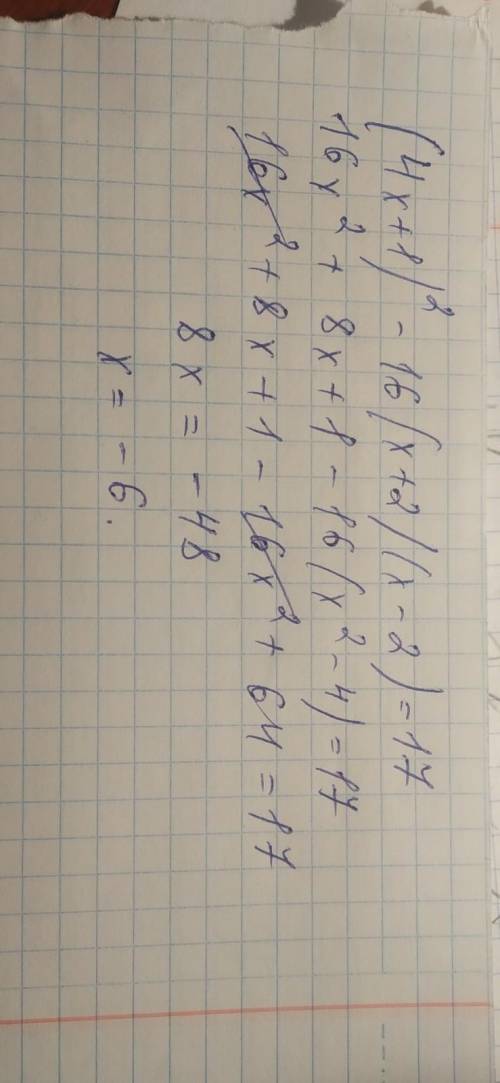 (4x+1)² - 16(x+2)(x-2)=17
16x² + 8x+1 - 16(x²-4)=17
16x² + 8x+1 - 16x² + 64 = 17
8x = -48
x = -6.